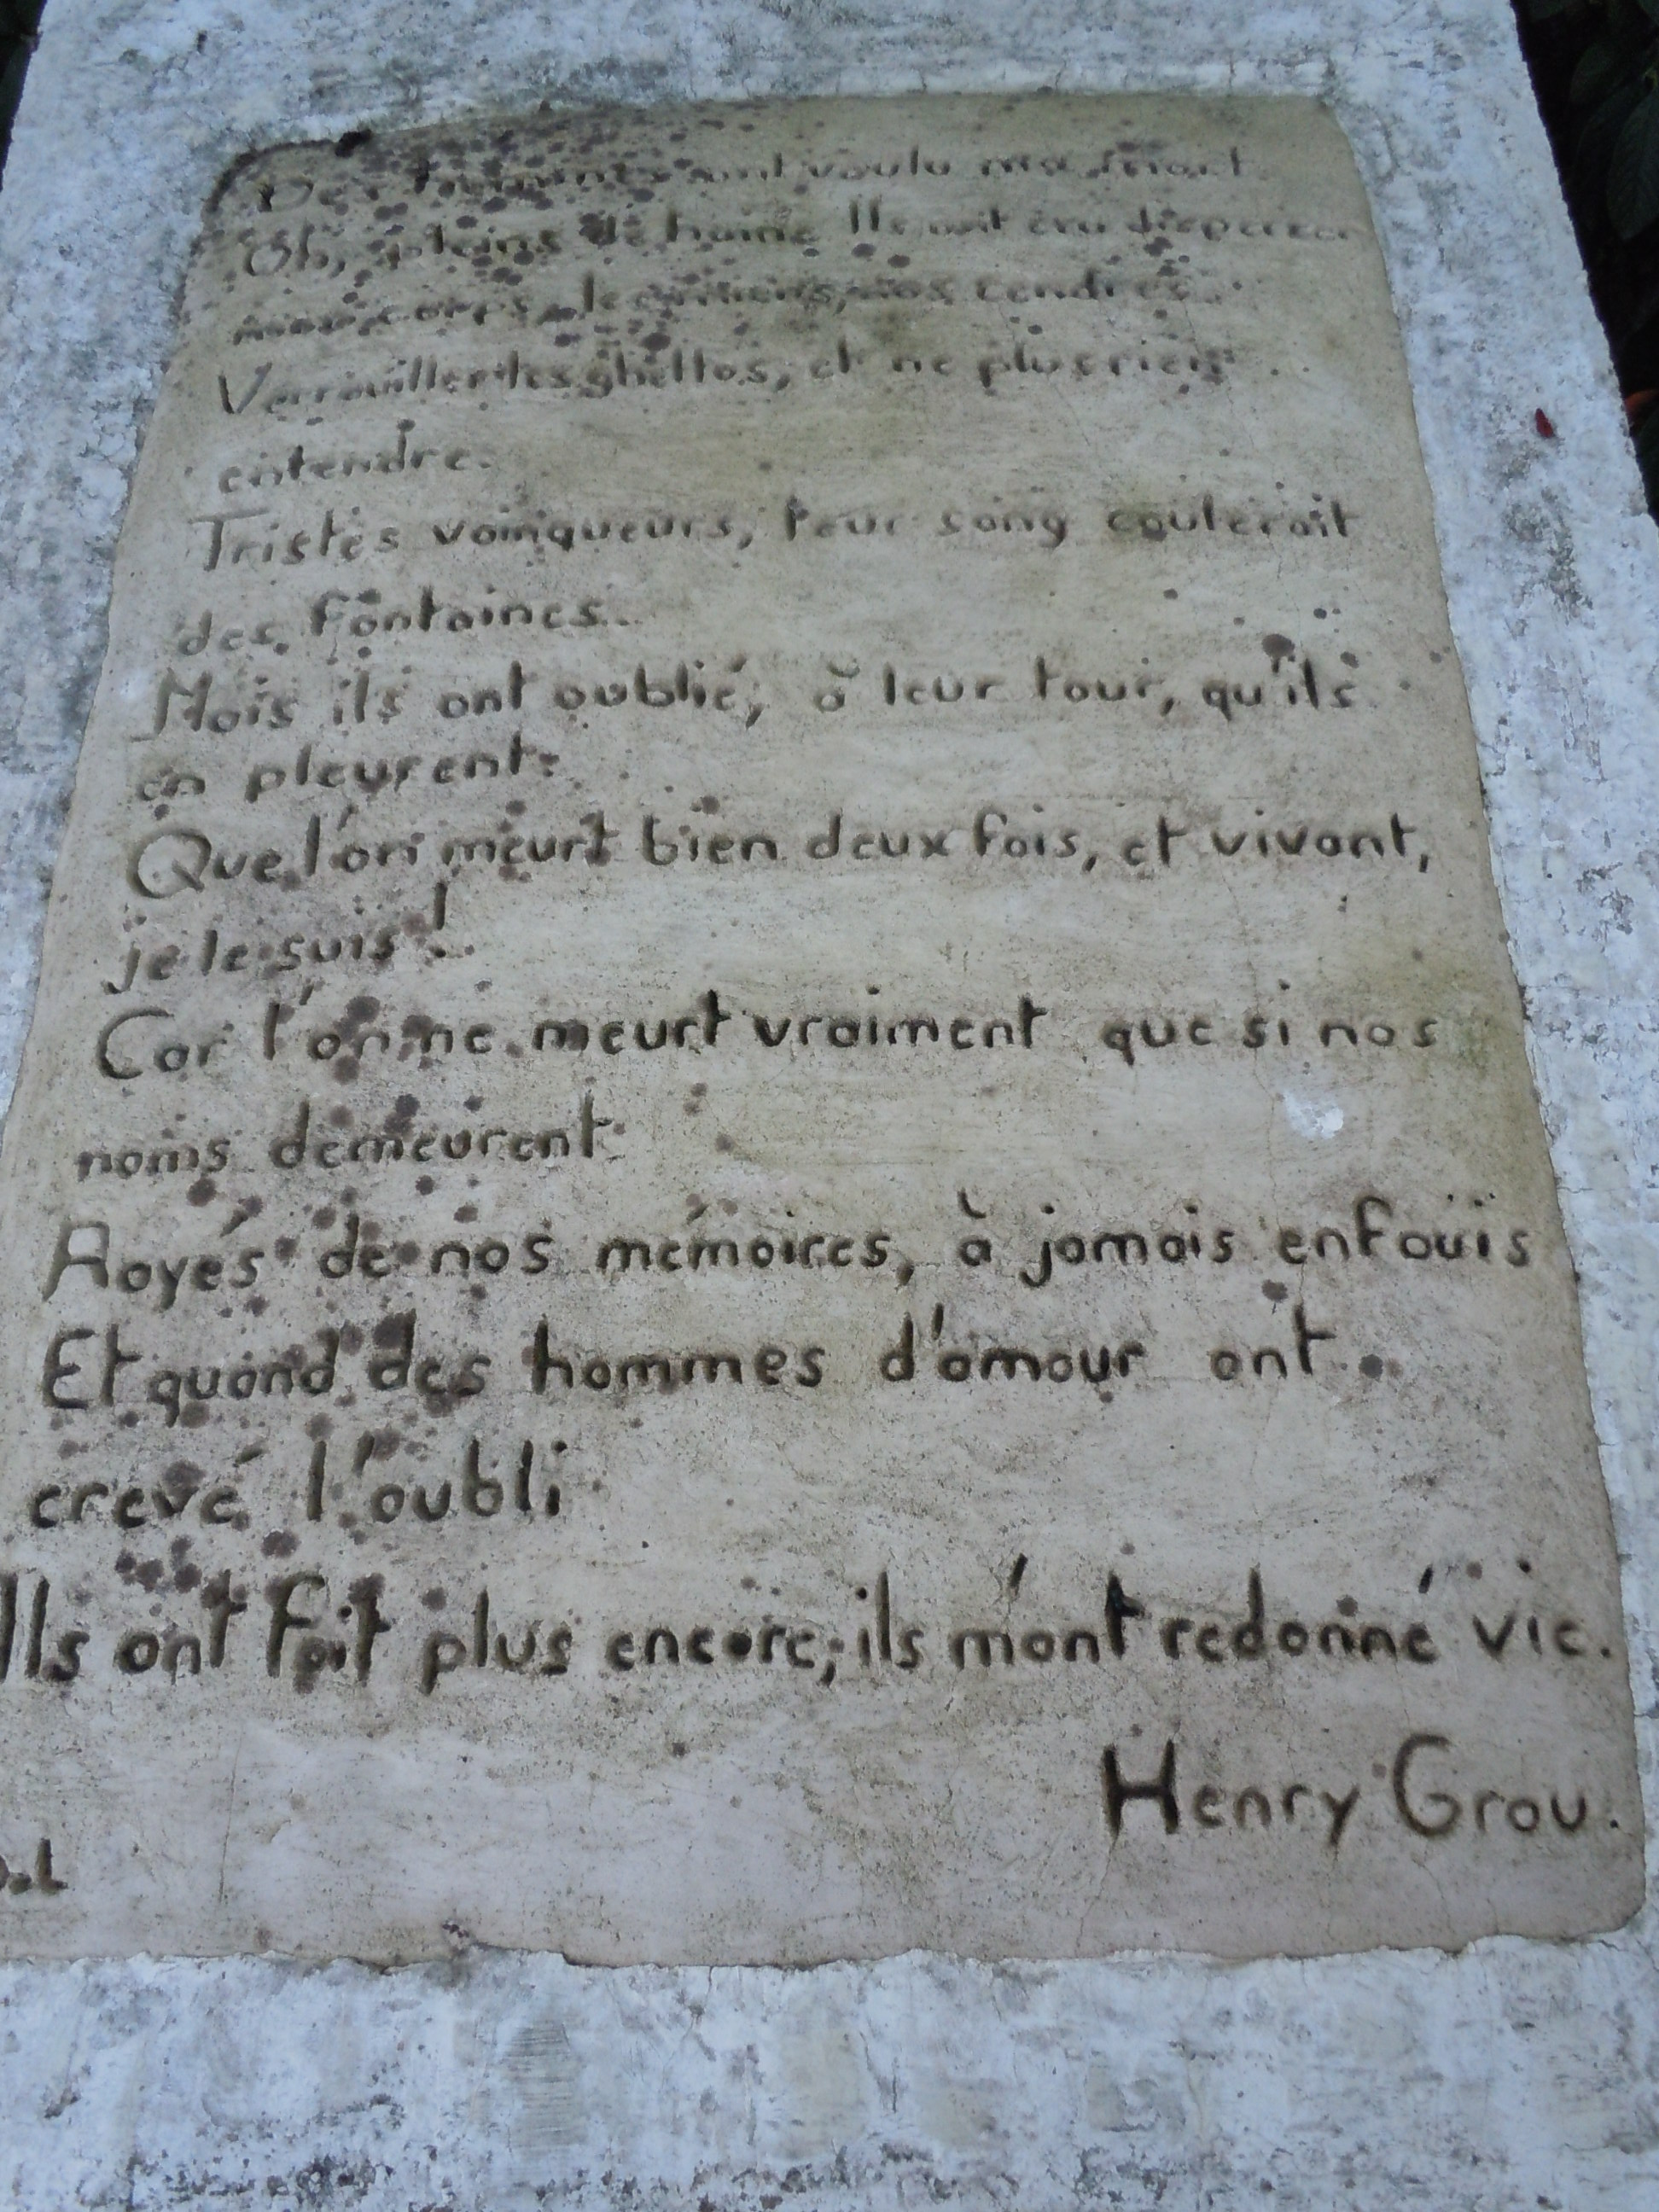 Des hommes ont voulu ma mort.
Oh, pleins de haine Ils ont cru disperser
mon corps, les miens, nos cendres.
Verrouiller les ghettos, et ne plus rien
entendre.
Tristes vainqueurs, leur sang coulerait
des fontaines.
Mais ils ont oublié, à leur tour, qu'ils
en pleurent.
Que l'on meurt bien deux fois, et vivant,
je le suis !
Car l'on ne meurt vraiment que si nos
noms demeurent
Rayés de nos mémoires, à jamais enfouïs
Et quand des hommes d'amour ont
crevé l'oubli
Ils ont fait plus encore, ils m'ont redonné vie.
Henry Grou.